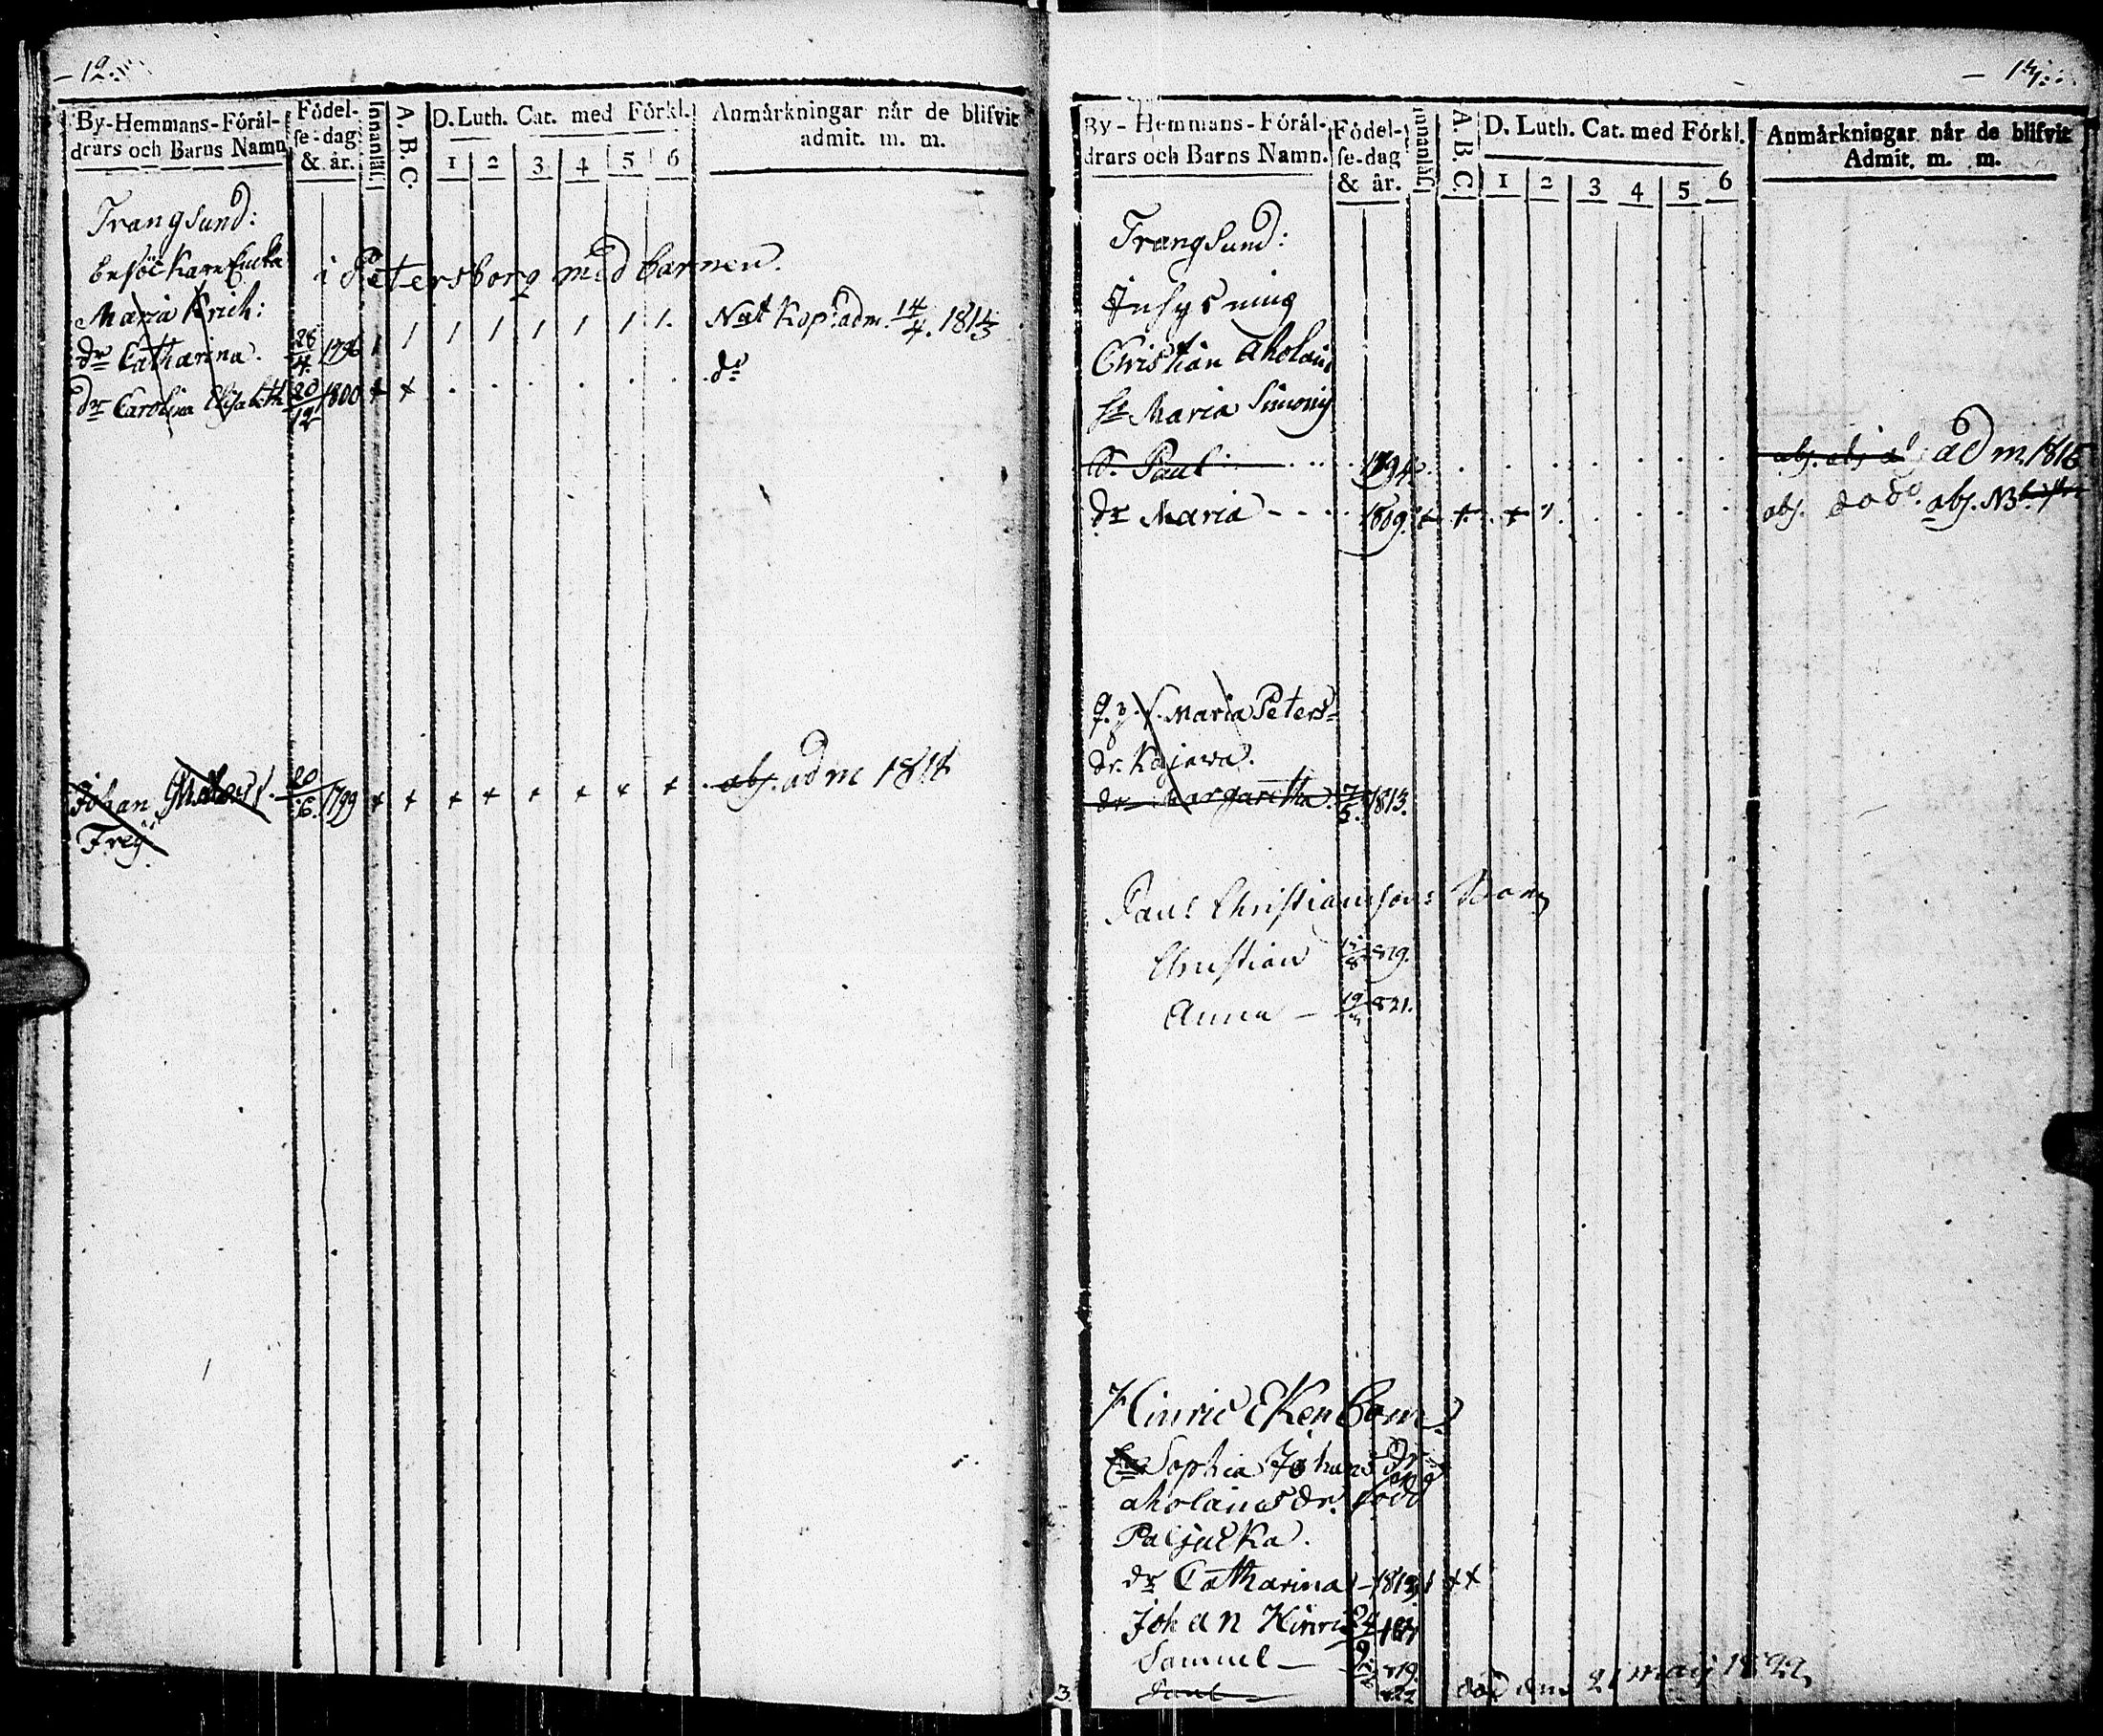 - 12.
By-Hemmans-Föräl-
drars och Barns Namn
Födel-
se-dag
& år.
Innanläs.
A. B. C.
D. Luth. Cat. med Förkl.
1 2 3 4 5 6
Anmärkningar när de blifvit
admit. m. m.
Trangsund:
besök kare Enka i Petersborg med barnen.
Maria
dr Catharina. 28/4 1796 1 1 1 1 1 1 1 1. Nat Kop. adm. 14/4. 1813
dr Carolina Elisabeth 20/12 1800 + + . . . . . . do
Johan 20/6. 1799 + + + + + + + + abs. adm 1814
Frey
By-Hemmans-Föräl-
drars och Barns Namn.
Födel-
se-dag
& år.
Innanläs.
A. B. C.
D. Luth. Cat. med Förkl.
1 2 3 4 5 6
Anmärkningar när de blifvit
Admit. m. m.
Trangsund:
Inhysning
Christian Aholain
h. Maria Simonis
S. Paul 1794. abs. abs adm. 1815
dr Maria - - 1809. + + + 1. abs. do do. abs. NB
Maria Peters-
dr. Kajava.
dr Margaretha. 7/5. 1813.
Paul Christiansons Barn
Christian 819.
Anna - 19 821.
Hinric Ekenbom
Sophia Johans dr
Aholain dr. född
Paljacka.
dr Catharina - 1813 + +
Johan Hinric 24
Samuel - 819
Paul 22 död den 21 Maij 1822